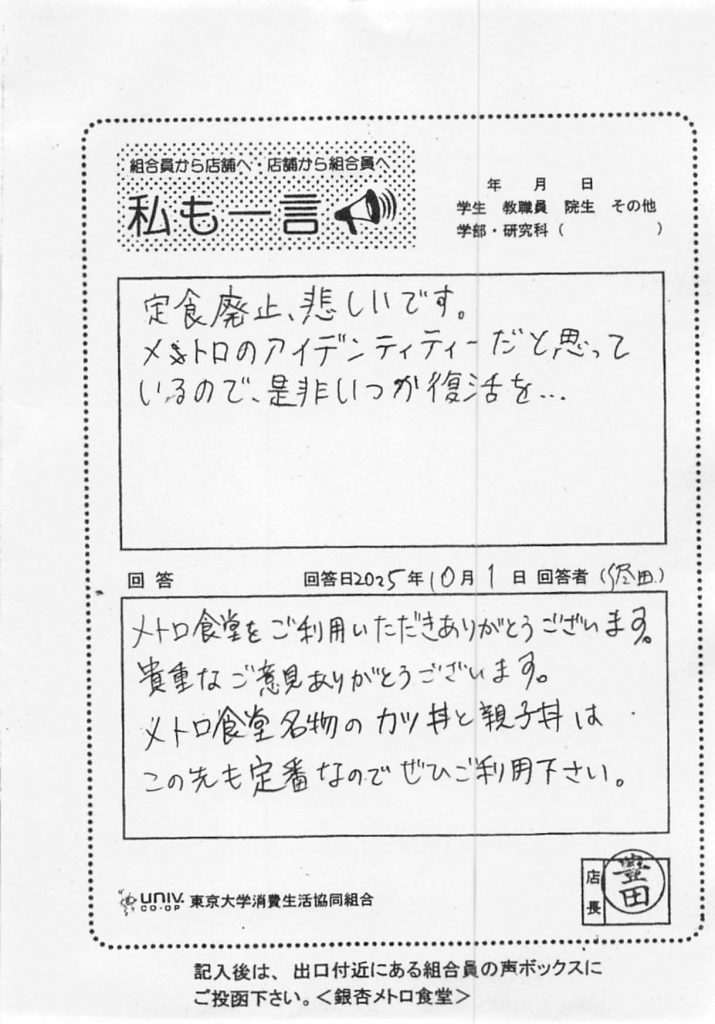 組合員から店舗へ・店舗から組合員へ
私も一言
年 月 日
学生 教職員 院生 その他
学部・研究科 ( )
定食廃止、悲しいです。
メトロのアイデンティティーだと思って
いるので、是非いつか復活を…
回答 回答日2025年10月1日 回答者 ( 田 )
メトロ食堂をご利用いただきありがとうございます。
貴重なご意見ありがとうございます。
メトロ食堂名物のカツ丼と親子丼は
この先も定番なのでぜひご利用下さい。
univ. CO-OP 東京大学消費生活協同組合
店長 豊田
記入後は、出口付近にある組合員の声ボックスに
ご投函下さい。＜銀杏メトロ食堂＞